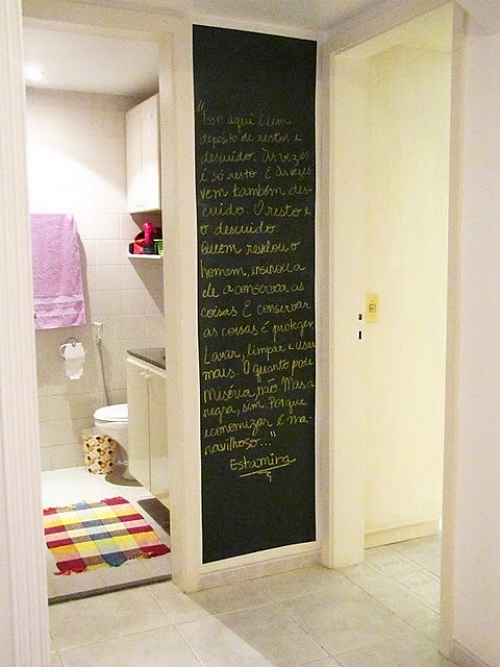 "Isso aqui é um
depósito de restos e
descuido. Às vezes
é só resto. E às vezes
vem também des-
cuido. O resto e
o descuido.
Quem revelou o
homem, ensinou a
ele a conservar as
coisas E conservar
as coisas é proteger
Lavar, limpar e usar
mais. O quanto pode
Miséria, não. Mas a
regra, sim. Porque
economizar é ma-
ravilhoso..."
Estamira